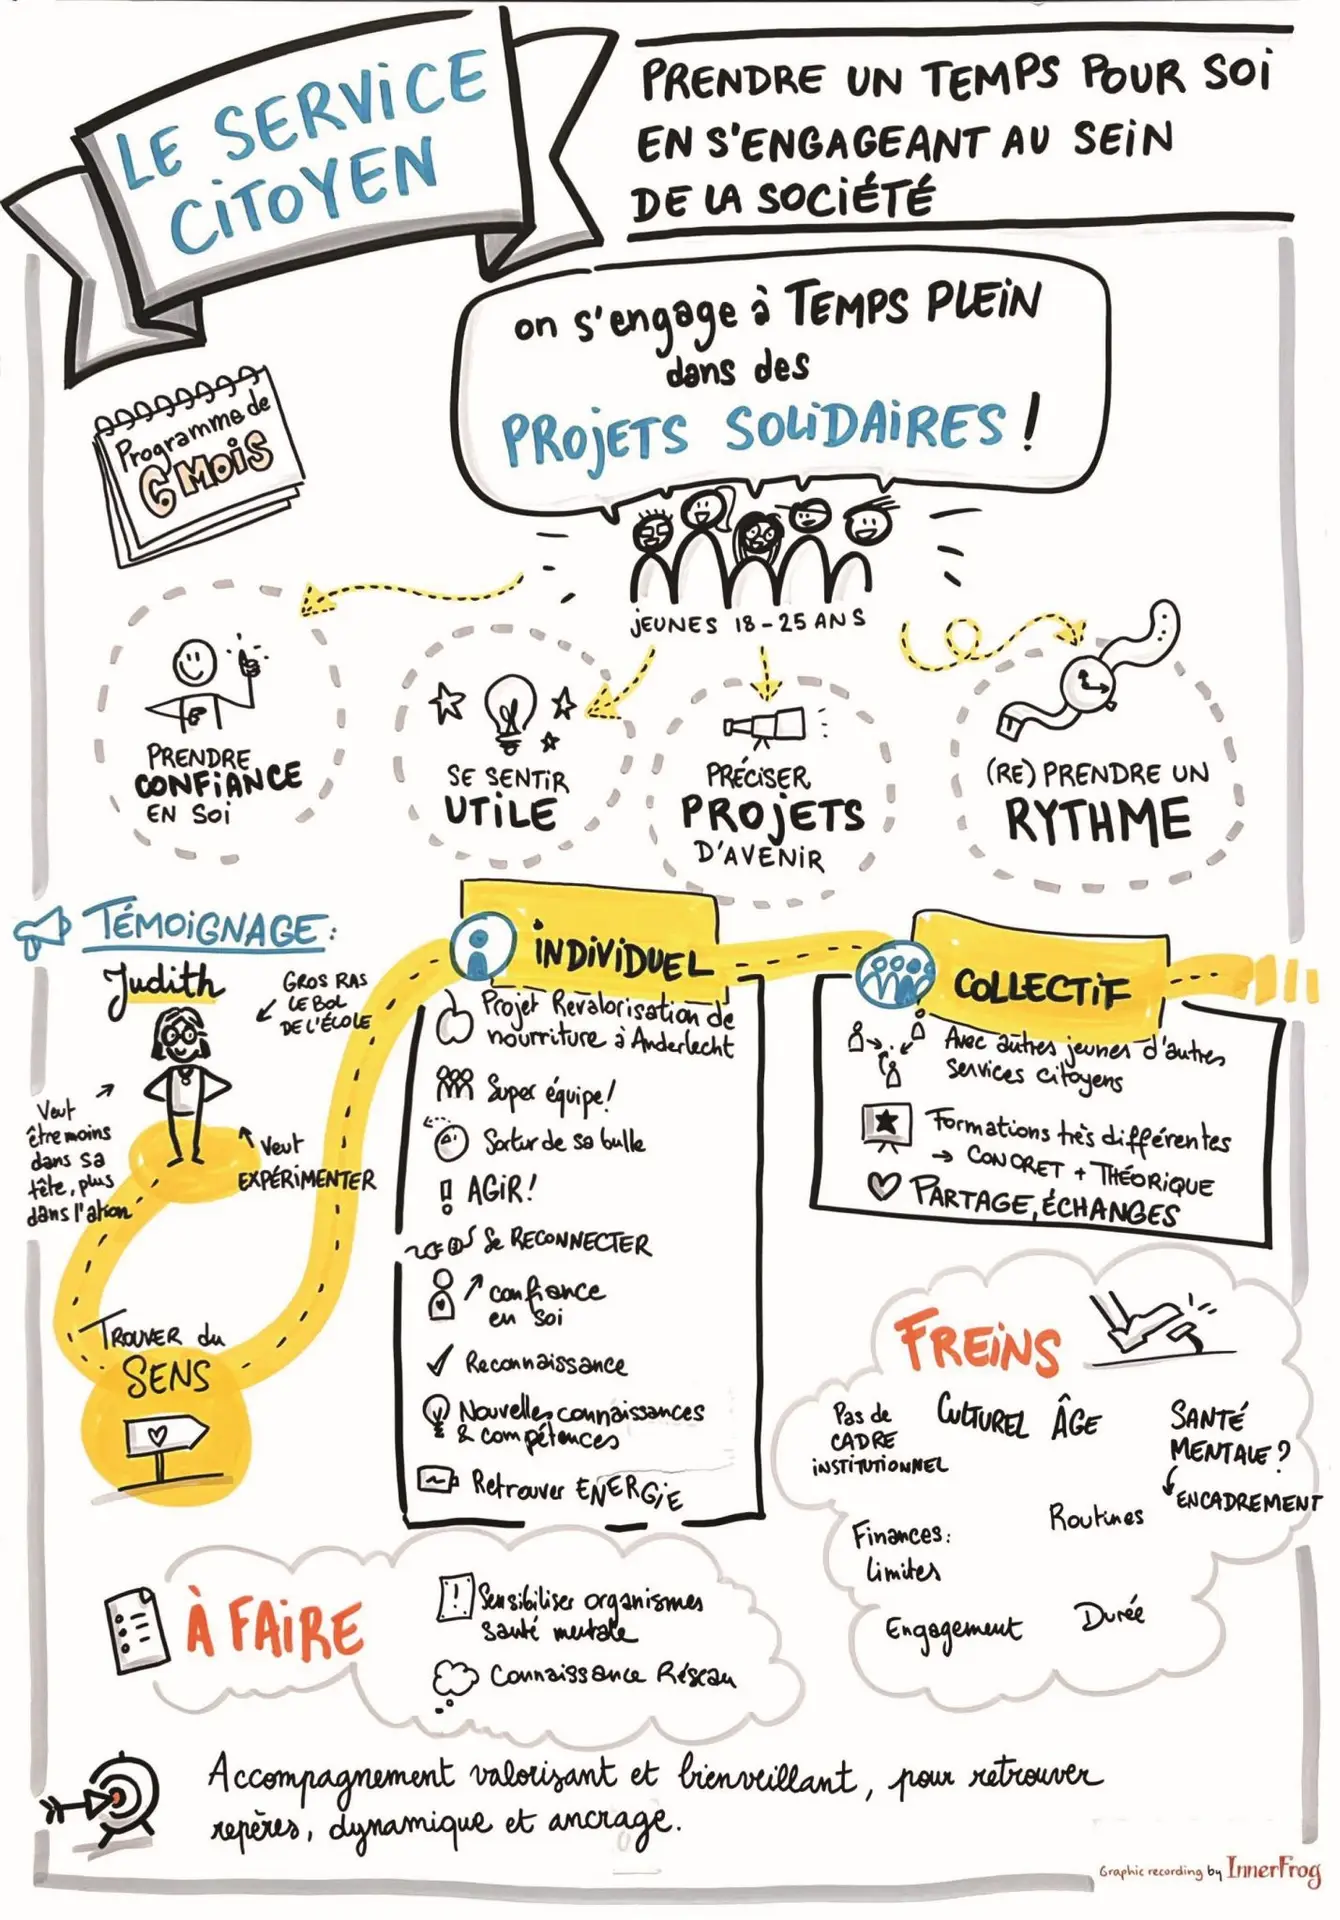 LE SERVICE
CITOYEN
PRENDRE UN TEMPS POUR SOI
EN S'ENGAGEANT AU SEIN
DE LA SOCIÉTÉ
on s'engage à TEMPS PLEIN
dans des
PROJETS SOLIDAIRES !
Programme de
6 MOIS
JEUNES 18-25 ANS
PRENDRE
CONFIANCE
EN SOI
SE SENTIR
UTILE
PRÉCISER
PROJETS
D'AVENIR
(RE) PRENDRE UN
RYTHME
TÉMOIGNAGE:
Judith
GROS RAS
LE BOL
DE L'ÉCOLE
Veut
être moins
dans sa
tête, plus
dans l'action
Veut
EXPÉRIMENTER
TROUVER du
SENS
INDIVIDUEL
Projet Revalorisation de
nourriture à Anderlecht
Super équipe!
Sortir de sa bulle
! AGIR!
Se RECONNECTER
confiance
en soi
Reconnaissance
Nouvelles connaissances
& compétences
Retrouver ENERGiE
COLLECTIF
Avec autres jeunes d'autres
services citoyens
Formations très différentes
→ CONCRET + THÉORIQUE
PARTAGE, ÉCHANGES
FREINS
Pas de
CADRE
INSTITUTIONNEL
CULTUREL
ÂGE
SANTÉ
MENTALE ?
ENCADREMENT
Finances:
limites
Routines
Engagement
Durée
À FAIRE
! Sensibiliser organismes
santé mentale
Connaissance Réseau
Accompagnement valorisant et bienveillant, pour retrouver
repères, dynamique et ancrage.
Graphic recording by InnerFrog